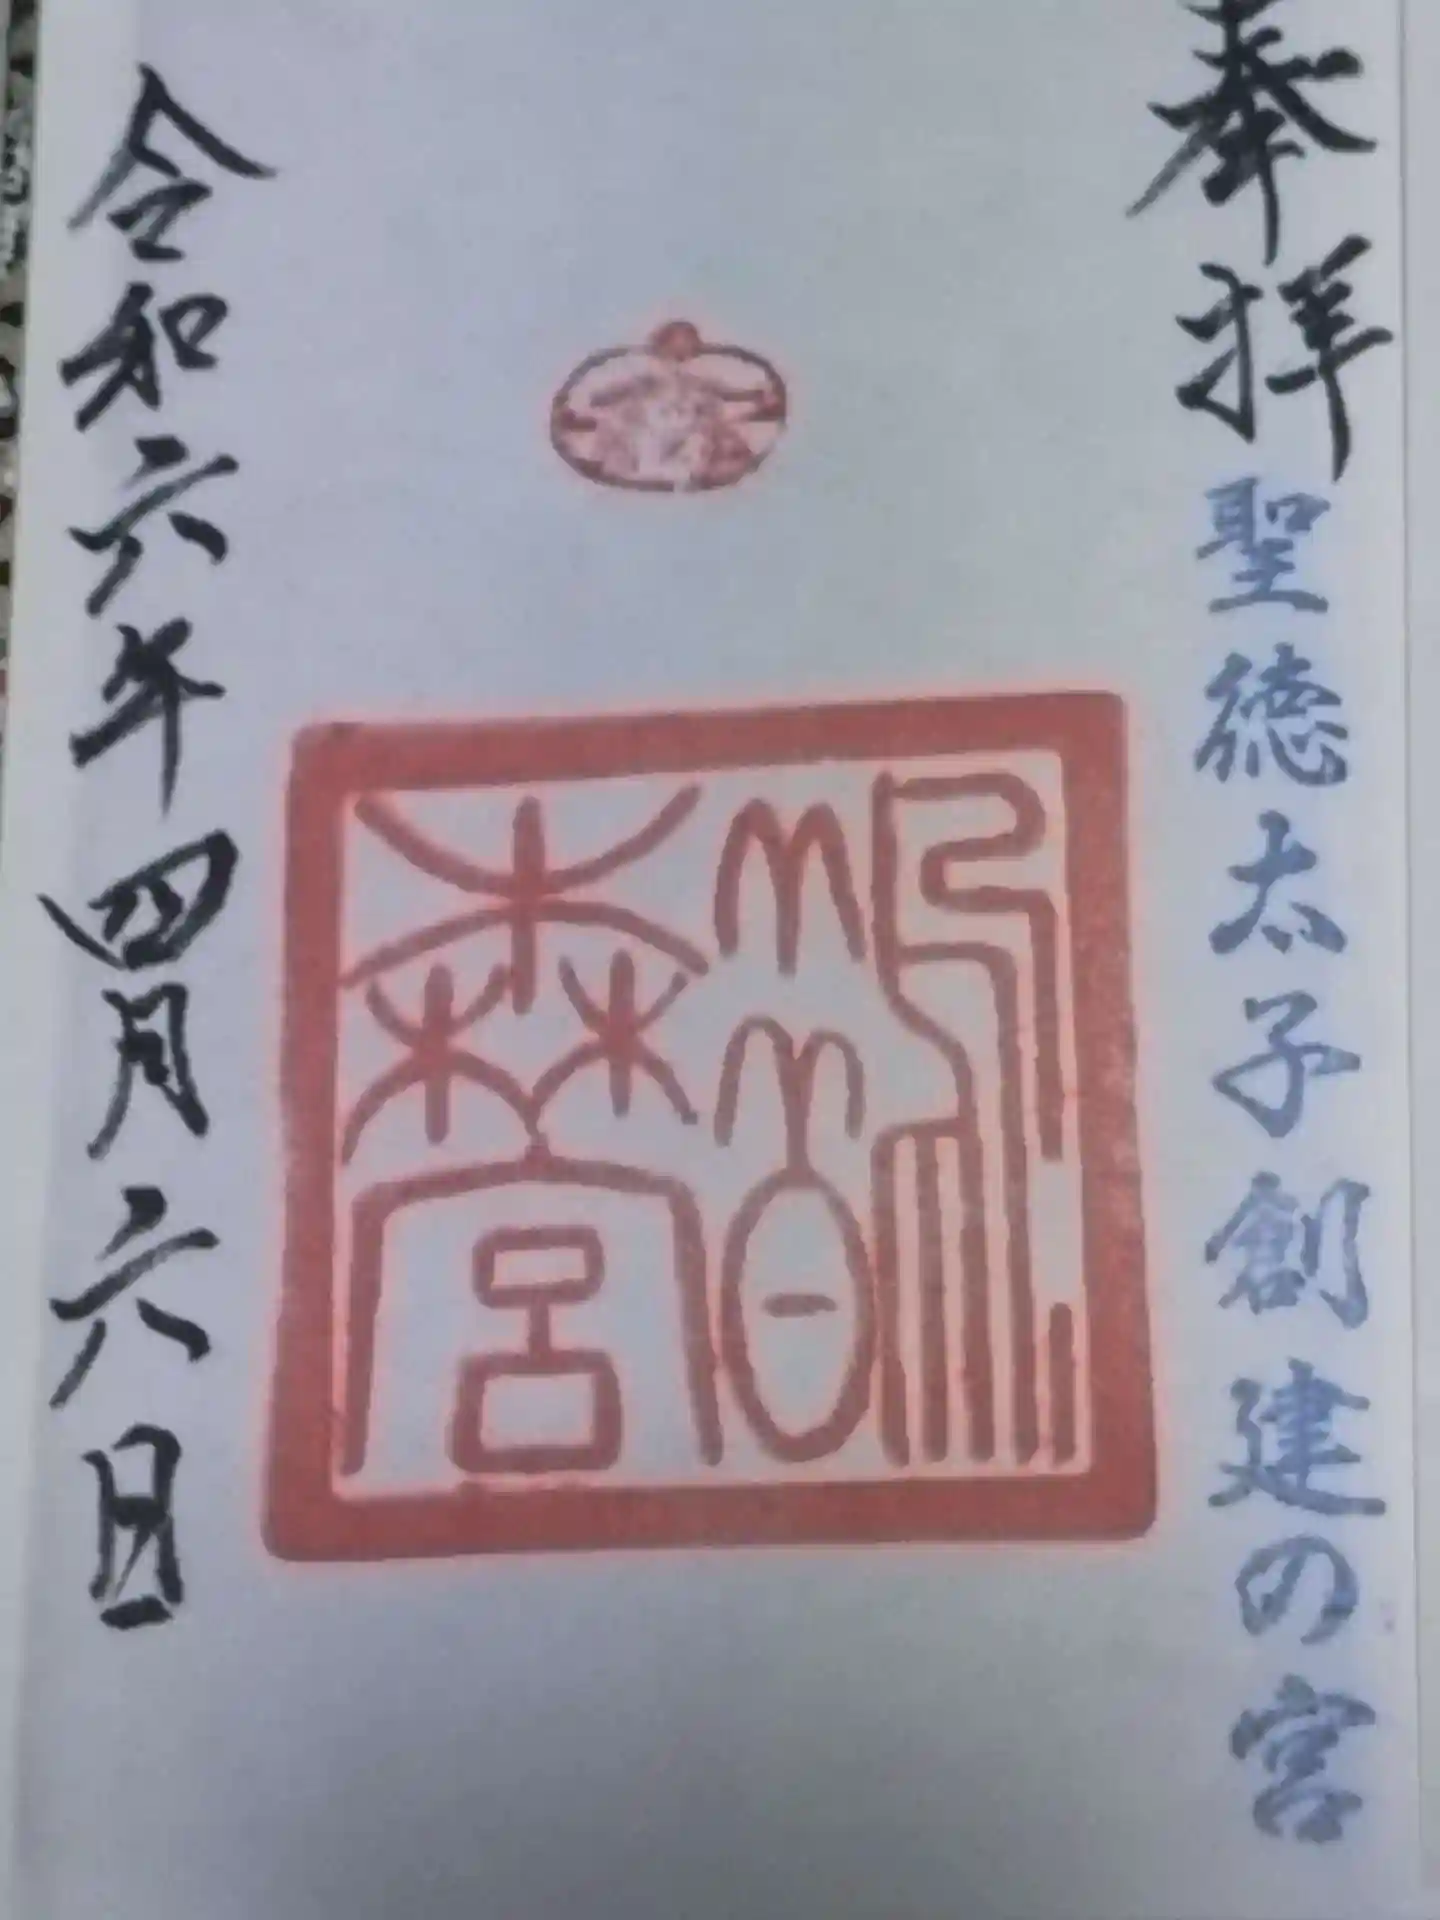 奉拝
聖徳太子創建の宮
鵲森宮
令和六年四月六日